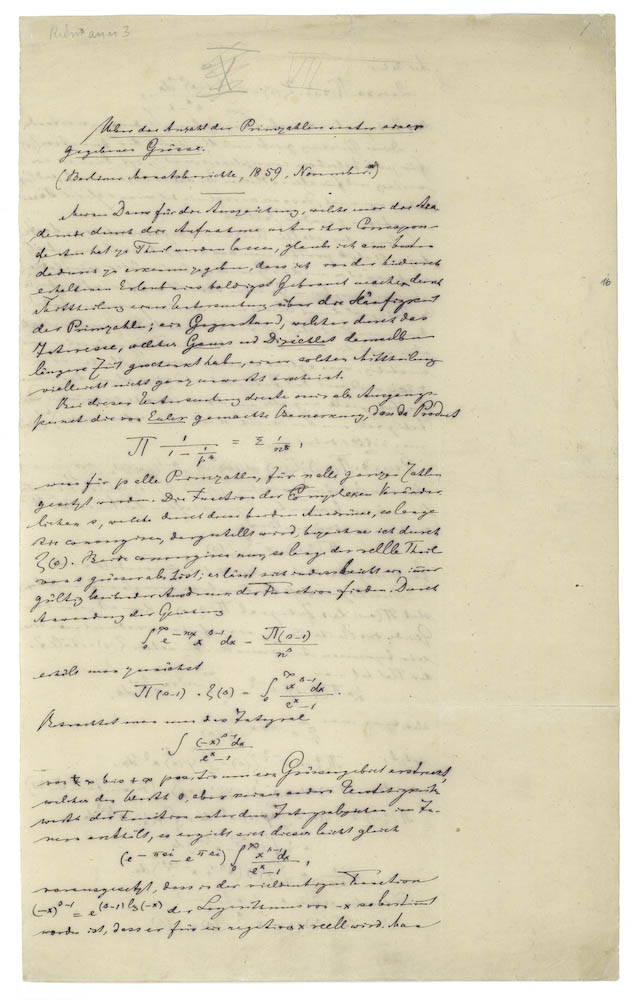 Riemann 3
1
X VII
Ueber die Anzahl der Primzahlen unter einer
gegebenen Grösse.
(Berliner Monatsberichte, 1859, November.)
Meinen Dank für die Auszeichnung, welche mir die Aka
demie durch die Aufnahme unter ihre Correspon-
denten hat zu Theil werden lassen, glaube ich am besten
dadurch zu erkennen zu geben, dass ich von der hiedurch
erhaltenen Erlaubniss baldigst Gebrauch mache durch
Mittheilung einer Untersuchung über die Häufigkeit
der Primzahlen; ein Gegenstand, welcher durch das
Interesse, welches Gauss und Dirichlet demselben
längere Zeit geschenkt haben, einer solchen Mittheilung
vielleicht nicht ganz unwerth erscheint.
16
Bei dieser Untersuchung diente mir als Ausgangs-
punkt die von Euler gemachte Bemerkung, dass das Product
Π 1/(1 − 1/p^s) = Σ 1/n^s,
wenn für p alle Primzahlen, für n alle ganzen Zahlen
gesetzt werden. Die Function der complexen Veränder
lichen s, welche durch diese beiden Ausdrücke, so lange
sie convergiren, dargestellt wird, bezeichne ich durch
ζ(s). Beide convergiren nur, so lange der reelle Theil
von s grösser als 1 ist; es lässt sich indess leicht ein immer
gültig bleibender Ausdruck der Function finden. Durch
Anwendung der Gleichung
∫₀^∞ e^(−nx) x^(s−1) dx = Π(s−1)/n^s
erhält man zunächst
Π(s−1) · ζ(s) = ∫₀^∞ x^(s−1) dx/(e^x − 1).
Betrachtet man nun das Integral
∫ (−x)^(s−1) dx/(e^x − 1)
von + ∞ bis + ∞ positiv um ein Grössengebiet erstreckt,
welches den Werth 0, aber keinen andern Unstetigkeits
werth der Function unter dem Integralzeichen im In-
nern enthält, so ergiebt sich dieses leicht gleich
(e^(−πsi) − e^(πsi)) ∫₀^∞ x^(s−1) dx/(e^x − 1),
vorausgesetzt, dass in der vieldeutigen Function
(−x)^(s−1) = e^((s−1) lg(−x)) der Logarithmus von −x so bestimmt
worden ist, dass er für ein negatives x reell wird. Man